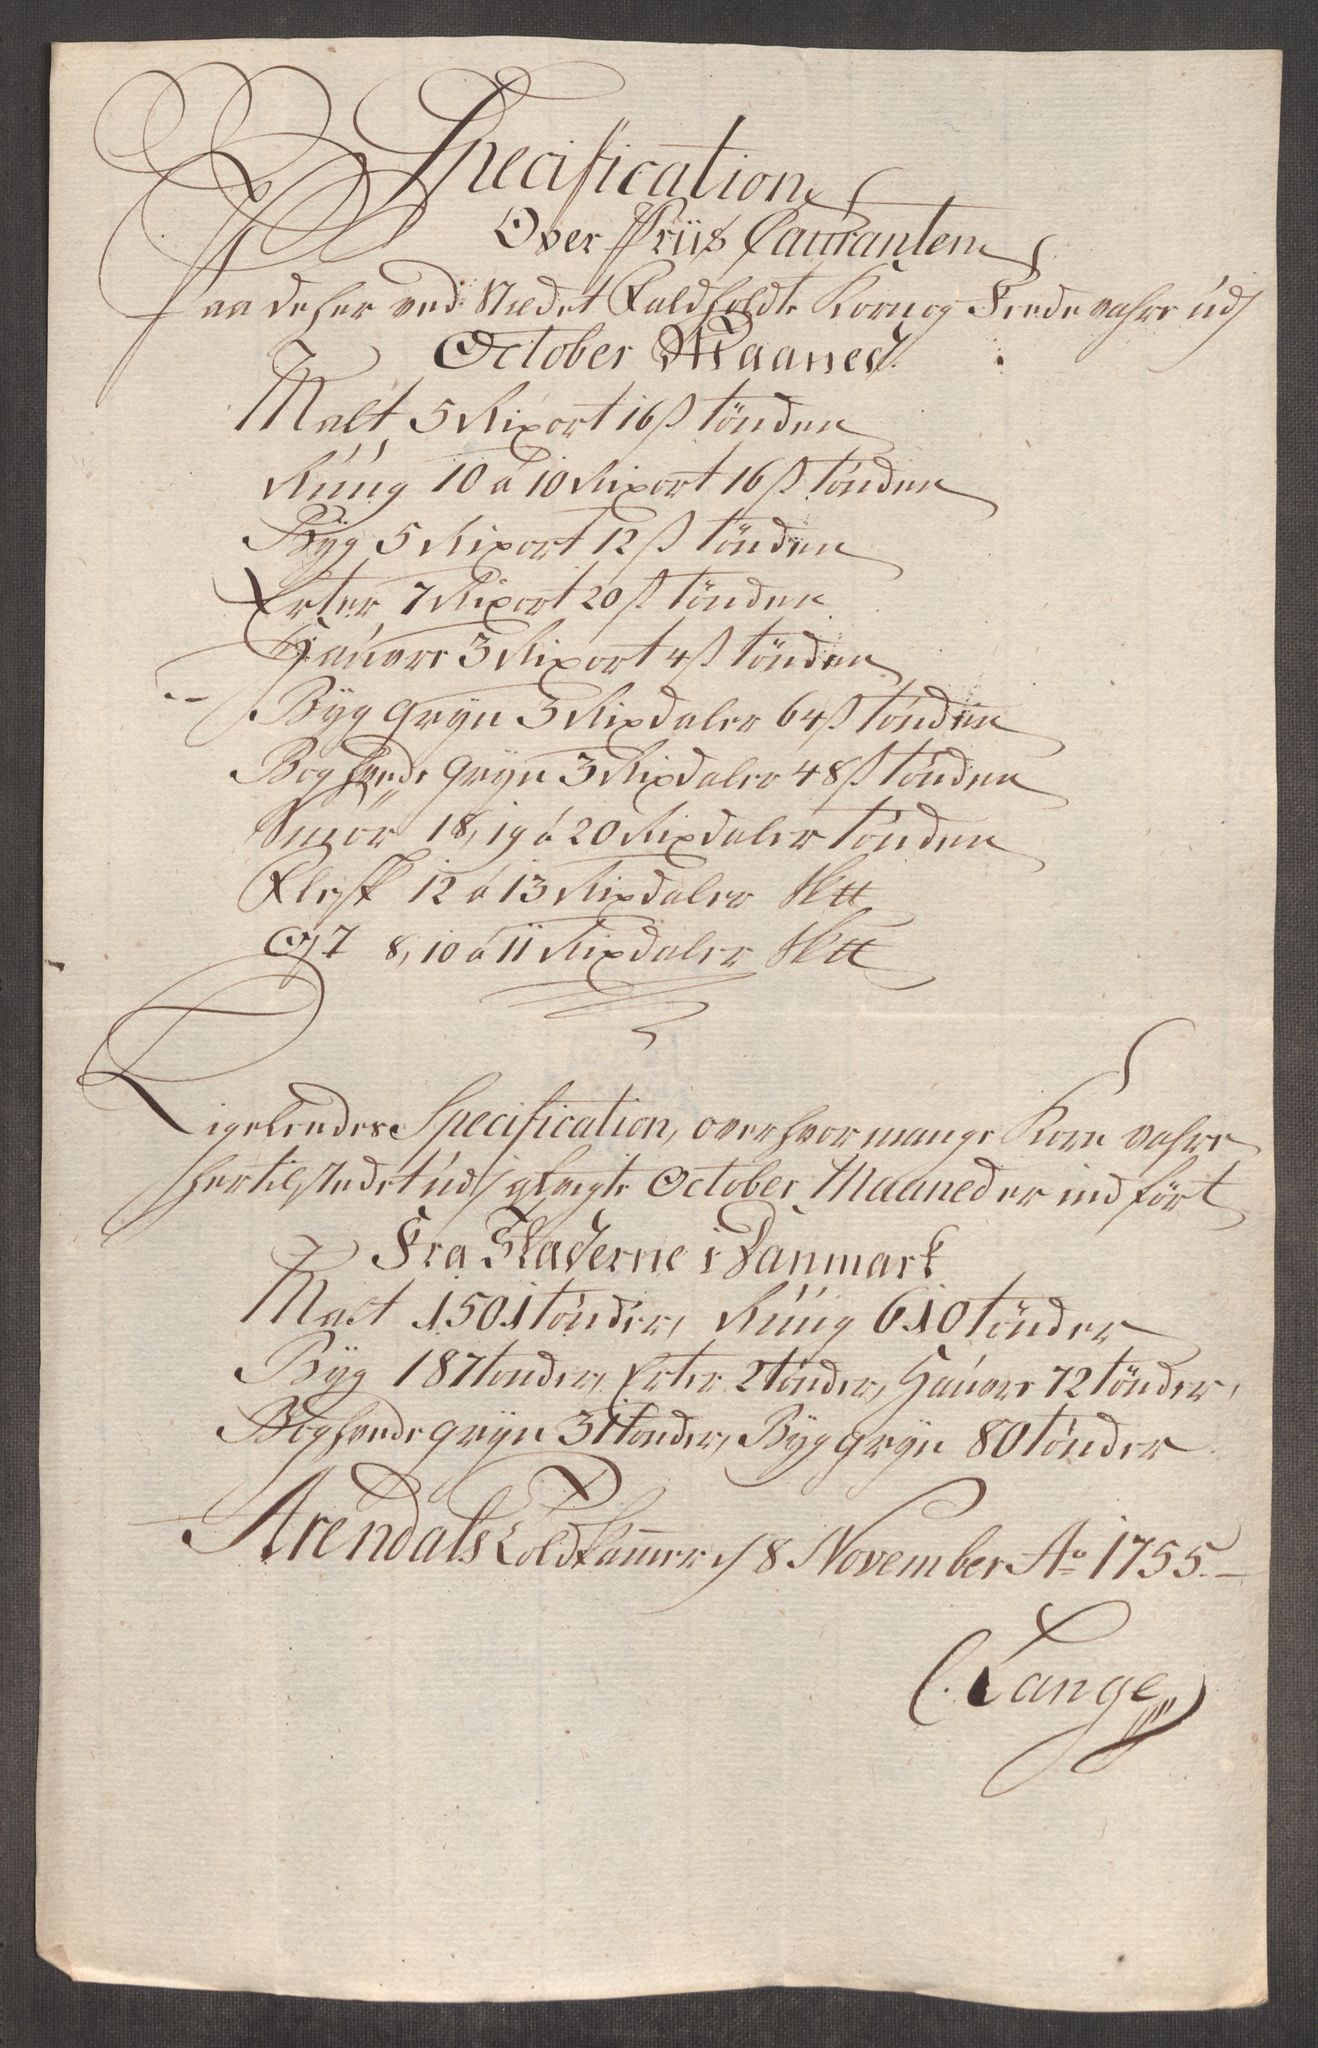 Specification
Over Priis Couranten
Paa de her ved Stædet Faldholdte Korn og Fede vahre udj
October Maaned.
Malt 5 Rixort 16 ß tönden
Rúúg 10 a 10 Rixort 16 ß tönden
Byg 5 Rixort 12 ß tönden
Erter 7 Rixort 20 ß tönden
Haúore 3 Rixort 4 ß tönden
Byg Gryn 3 Rixdaler 64 ß tönden
Boghvede Gryn 3 Rixdaler 48 ß tönden
Smör 18, 19 á 20 Rixdaler tönden
Flesk 12 á 13 Rixdaler
Ost 8, 10 á 11 Rixdaler
Ligeledes Specification, over hvor mange Korn vahre
her til stedet udj October Maaned er ind fört
Fra Stæderne i Danmark
Malt 1501 tönder, Rúúg 610 tönder
Byg 187 tönder, Erter 2 tönder, Haúore 72 tönder,
Boghvede gryn 31 tönder, Byg gryn 80 tönder
Arendals Toldkammer 8 November Ao 1755.
C. Lange